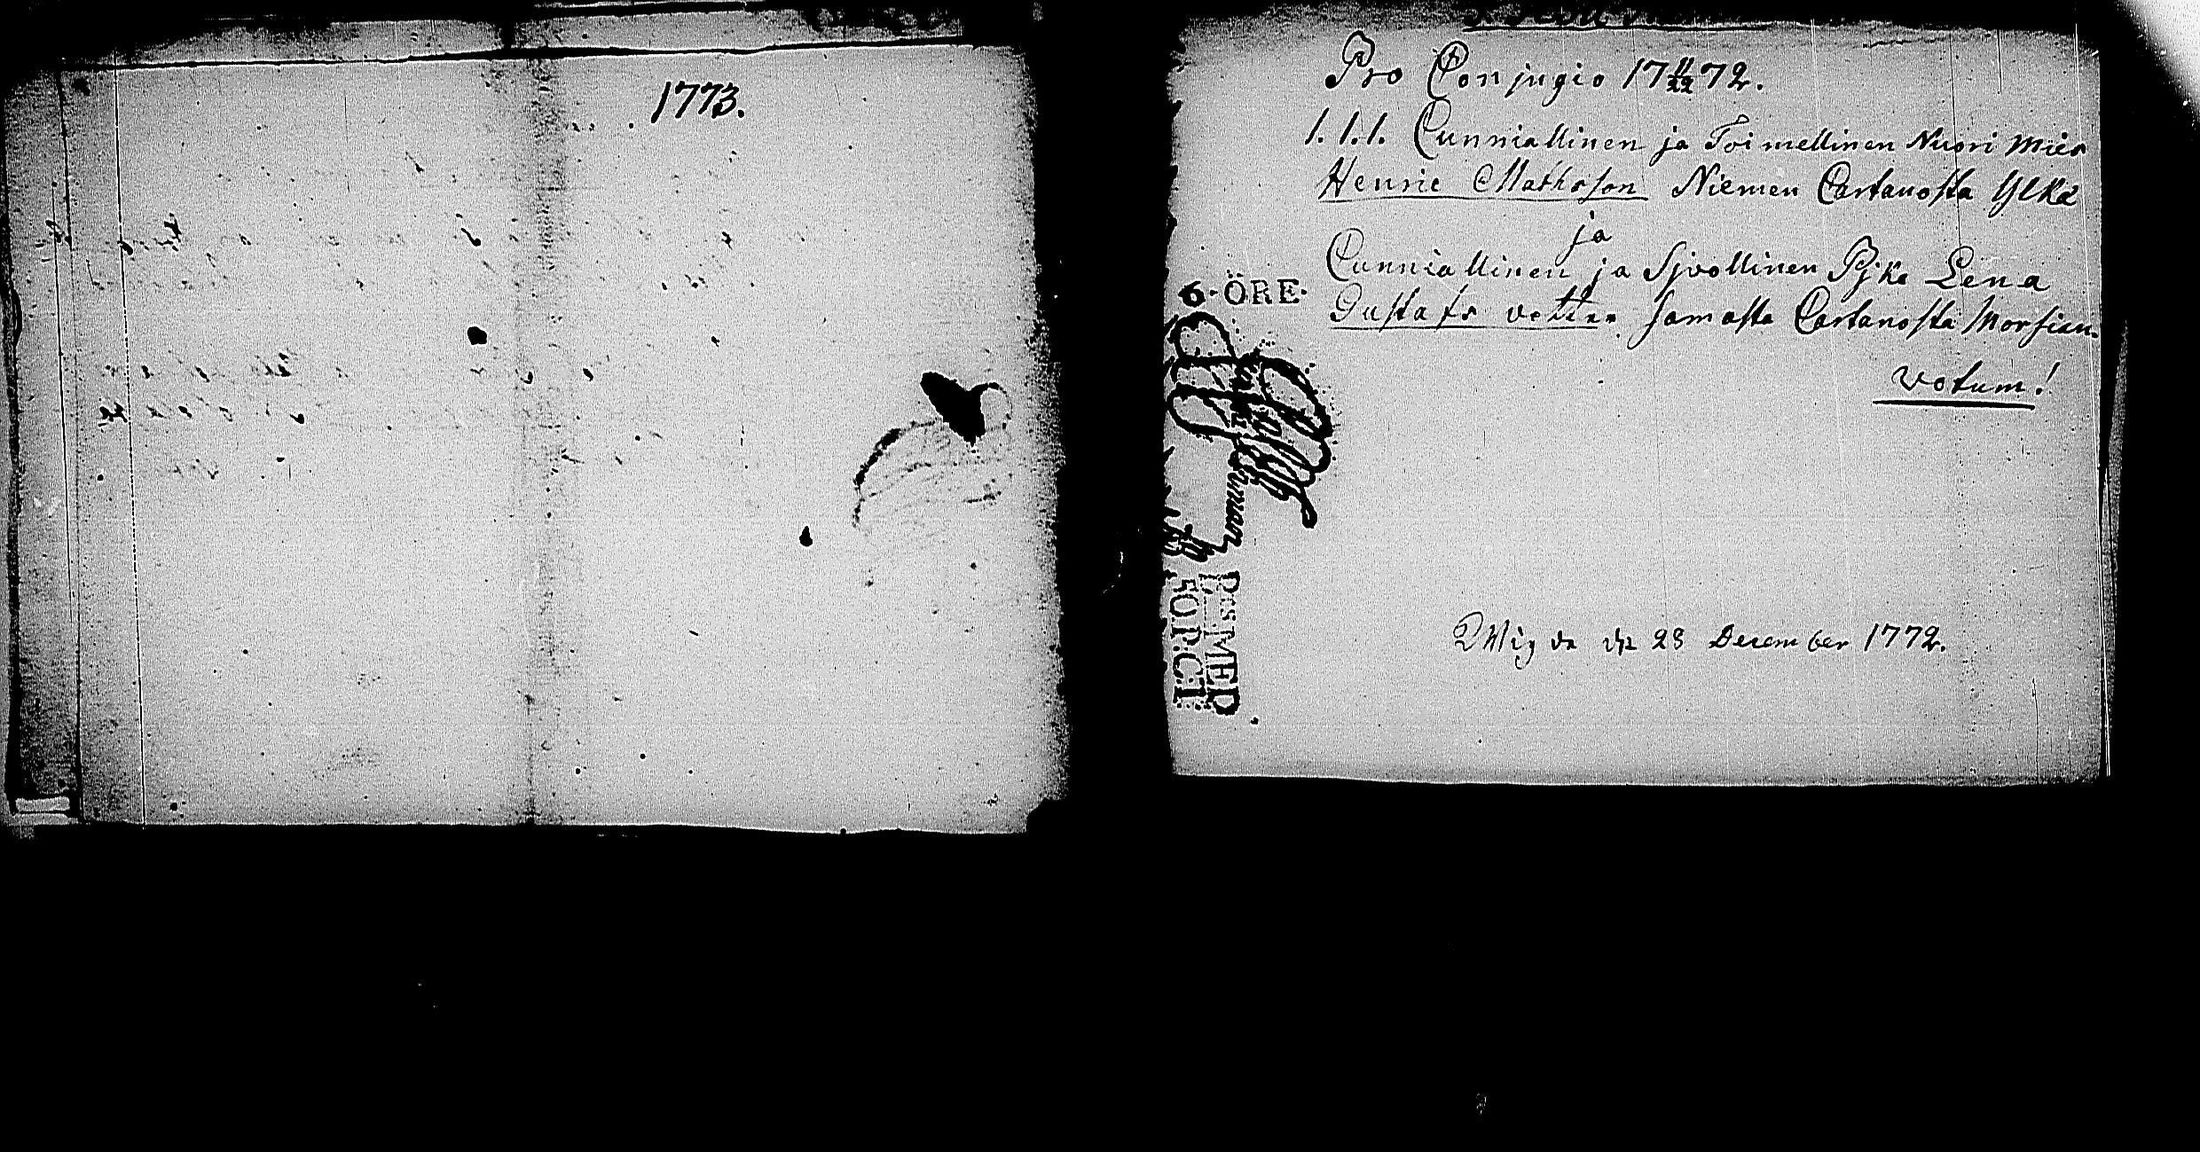 1773.
Pro Conjugio 17 11/22 72.
1. 1. 1. Cunniallinen ja Toimellinen Nuori Mies
Henric Mathsson Niemen Cartanosta Ylkä
ja
Cunniallinen ja Sivollinen Pijka Lena
Gustafs dotter samasta Cartanosta Morsian.
Votum!
6·ÖRE·
50.P:CT.
den 23 December 1772.